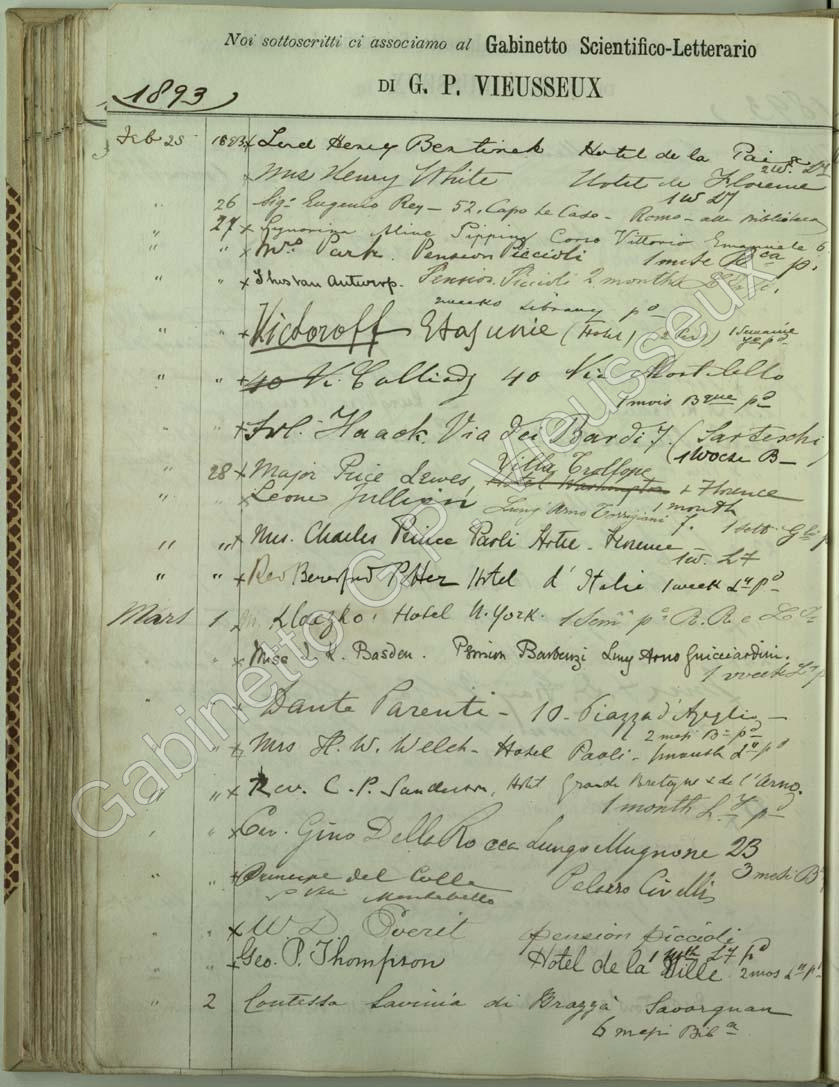 Noi sottoscritti ci associamo al Gabinetto Scientifico-Letterario
DI G. P. VIEUSSEUX
1893
Feb 25 1893 x Lord Henry Bentinck Hotel de la Paix
2 W. L7
Mrs Henry White Hotel de Florence
1 W L7
" 26 Sigr Eugenio Rey - 52, Capo le Case - Roma - alla Biblioteca
" 27 x Signorina Aline Pipping Corso Vittorio Emanuele 6
" " x Mrs Park. Pension Piccioli 1 mese Bca p.
" " x Pension Piccioli 2 months
2 weeks Library pd
" " x Victoroff (Hotel)
" " 40 Via Montebello
1 mois Bque pd
" " x Frl. Haack. Via dei Bardi 7. (Sarteschi)
1 Woche B-
" 28 x Major Price Lewes, Villa Trollope
Hotel Washington Florence
" " x Leone Lung' Arno Torrigiani 7.
1 month
" " x Mrs. Charles Prince Paoli Hotel - Florence
1 w. L7
" " x Rev Beresford Hotel d'Italie 1 week Lr pd
Mars 1 Hotel N. York. 1 Sema pa R. R. e
" x Miss J. K. Basden. Pension Barbenzi Lung Arno Guicciardini.
1 week
" " Dante Parenti - 10 - Piazza d'Azeglio -
2 mesi Ba pd
" " x Mrs H. W. Welch - Hotel Paoli - 1 month Lr pd
" " x Rev. C. P. Sanderson, Hotel Grande Bretagne & de l'Arno.
1 month L7 pd
" " x Cav. Gino Della Rocca Lungo Mugnone 23
3 mesi Ba
" " x Principe del Colle Palazzo Civelli
Via Montebello
" " x W D Pension Piccioli
1 mth L7 pd
" " x Geo. P. Thompson Hotel de la Ville 2 mos Lr pd
" 2 Contessa Lavinia di Brazzà Savorgnan
6 mesi Biba
Gabinetto G.P. Vieusseux